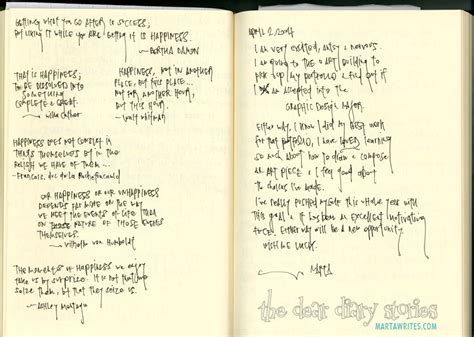 Getting what you go after is success;
but liking it while you are getting it is happiness.
— Bertha Damon
That is happiness;
to be dissolved into
something
complete & great.
— Willa Cather
Happiness, not in another
place, but this place...
not for another hour,
but this hour
— Walt Whitman
Happiness does not consist in
things themselves but in the
relish we have of them...
— Francois, duc de la Rochefoucauld
Our happiness or our unhappiness
depends far more on the way
we meet the events of life than
on nature of those events
themselves.
— Wilhelm von Humboldt
The moments of happiness we enjoy
take us by surprise. It is not that we
seize them, but that they seize us.
— Ashley Montagu
April 2, 2004
I am very excited, antsy & nervous.
I am going to the art building to
pick up my portfolio & find out if
I am accepted into the
Graphic Design Major.
Either way, I know I did my best work
for that portfolio, I have loved learning
so much about how to draw & compose
an art piece & I feel good about
the choices I've made.
I've really pushed myself this whole year with
this goal & it has been an excellent motivating
force. Either way will be a new opportunity.
Wish me luck.
— Marta
the dear diary stories
MARTAWRITES.COM